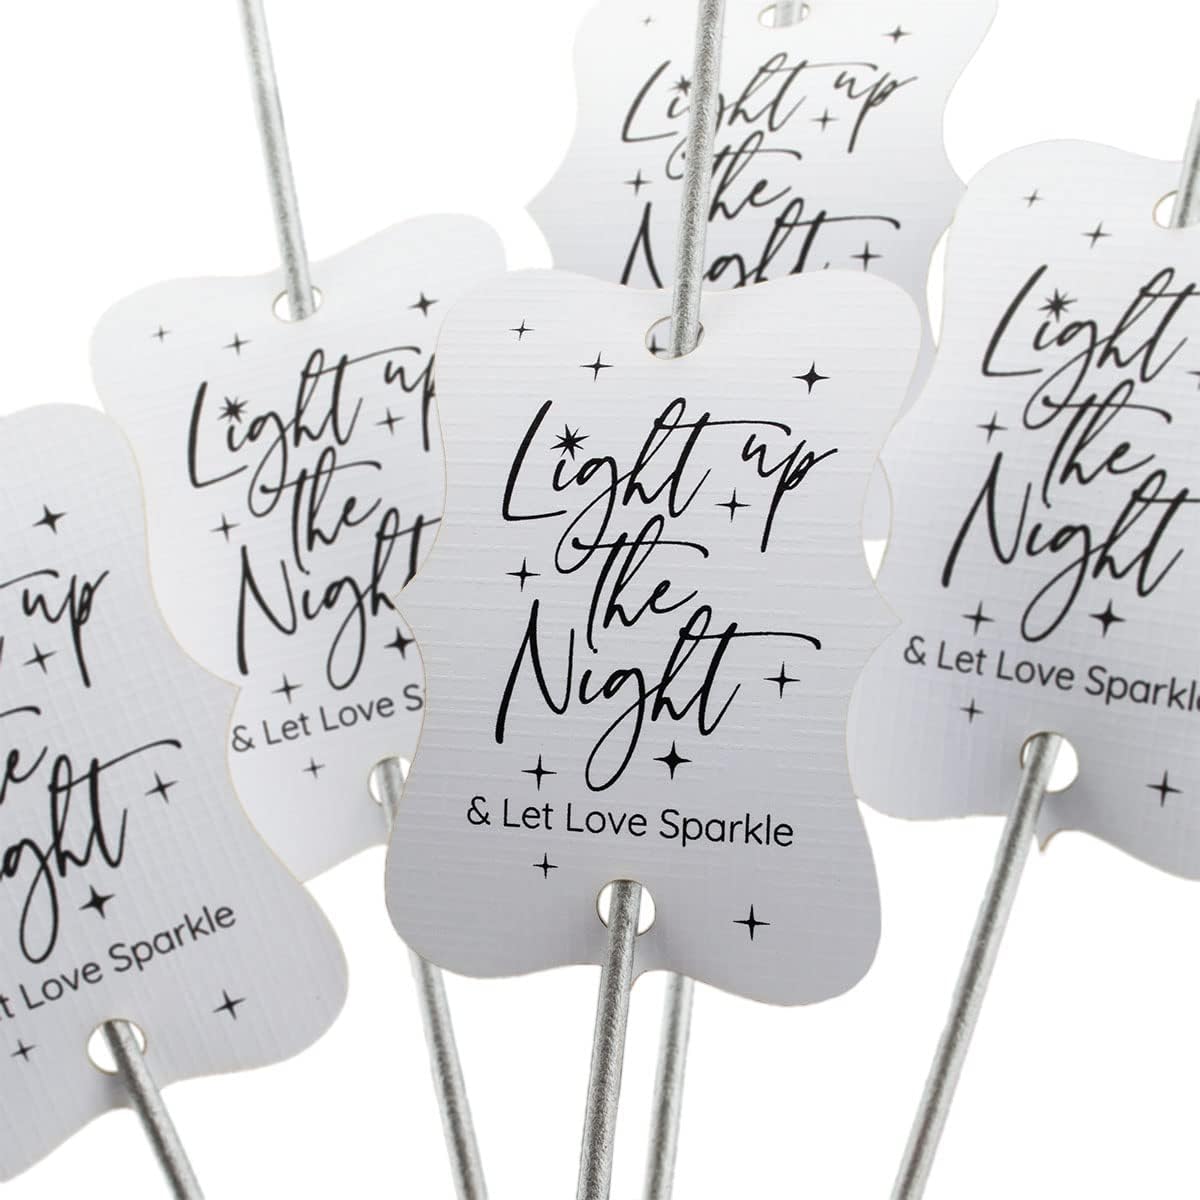 Light up
the
Night
Light up
the
Night
& Let Love Sparkle
Light up
the
Night
& Let Love S
Light up
the
Night
& Let Love Sparkle
up
e
ght
t Love Sparkle